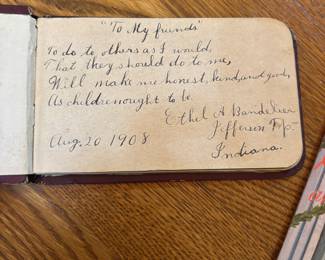 "To My friends"
To do to others as I would,
That they should do to me,
Will make me honest, kind, and good,
As children ought to be.
Ethel A Bandelier
Jefferson Tp.
Aug. 20 1908
Indiana.